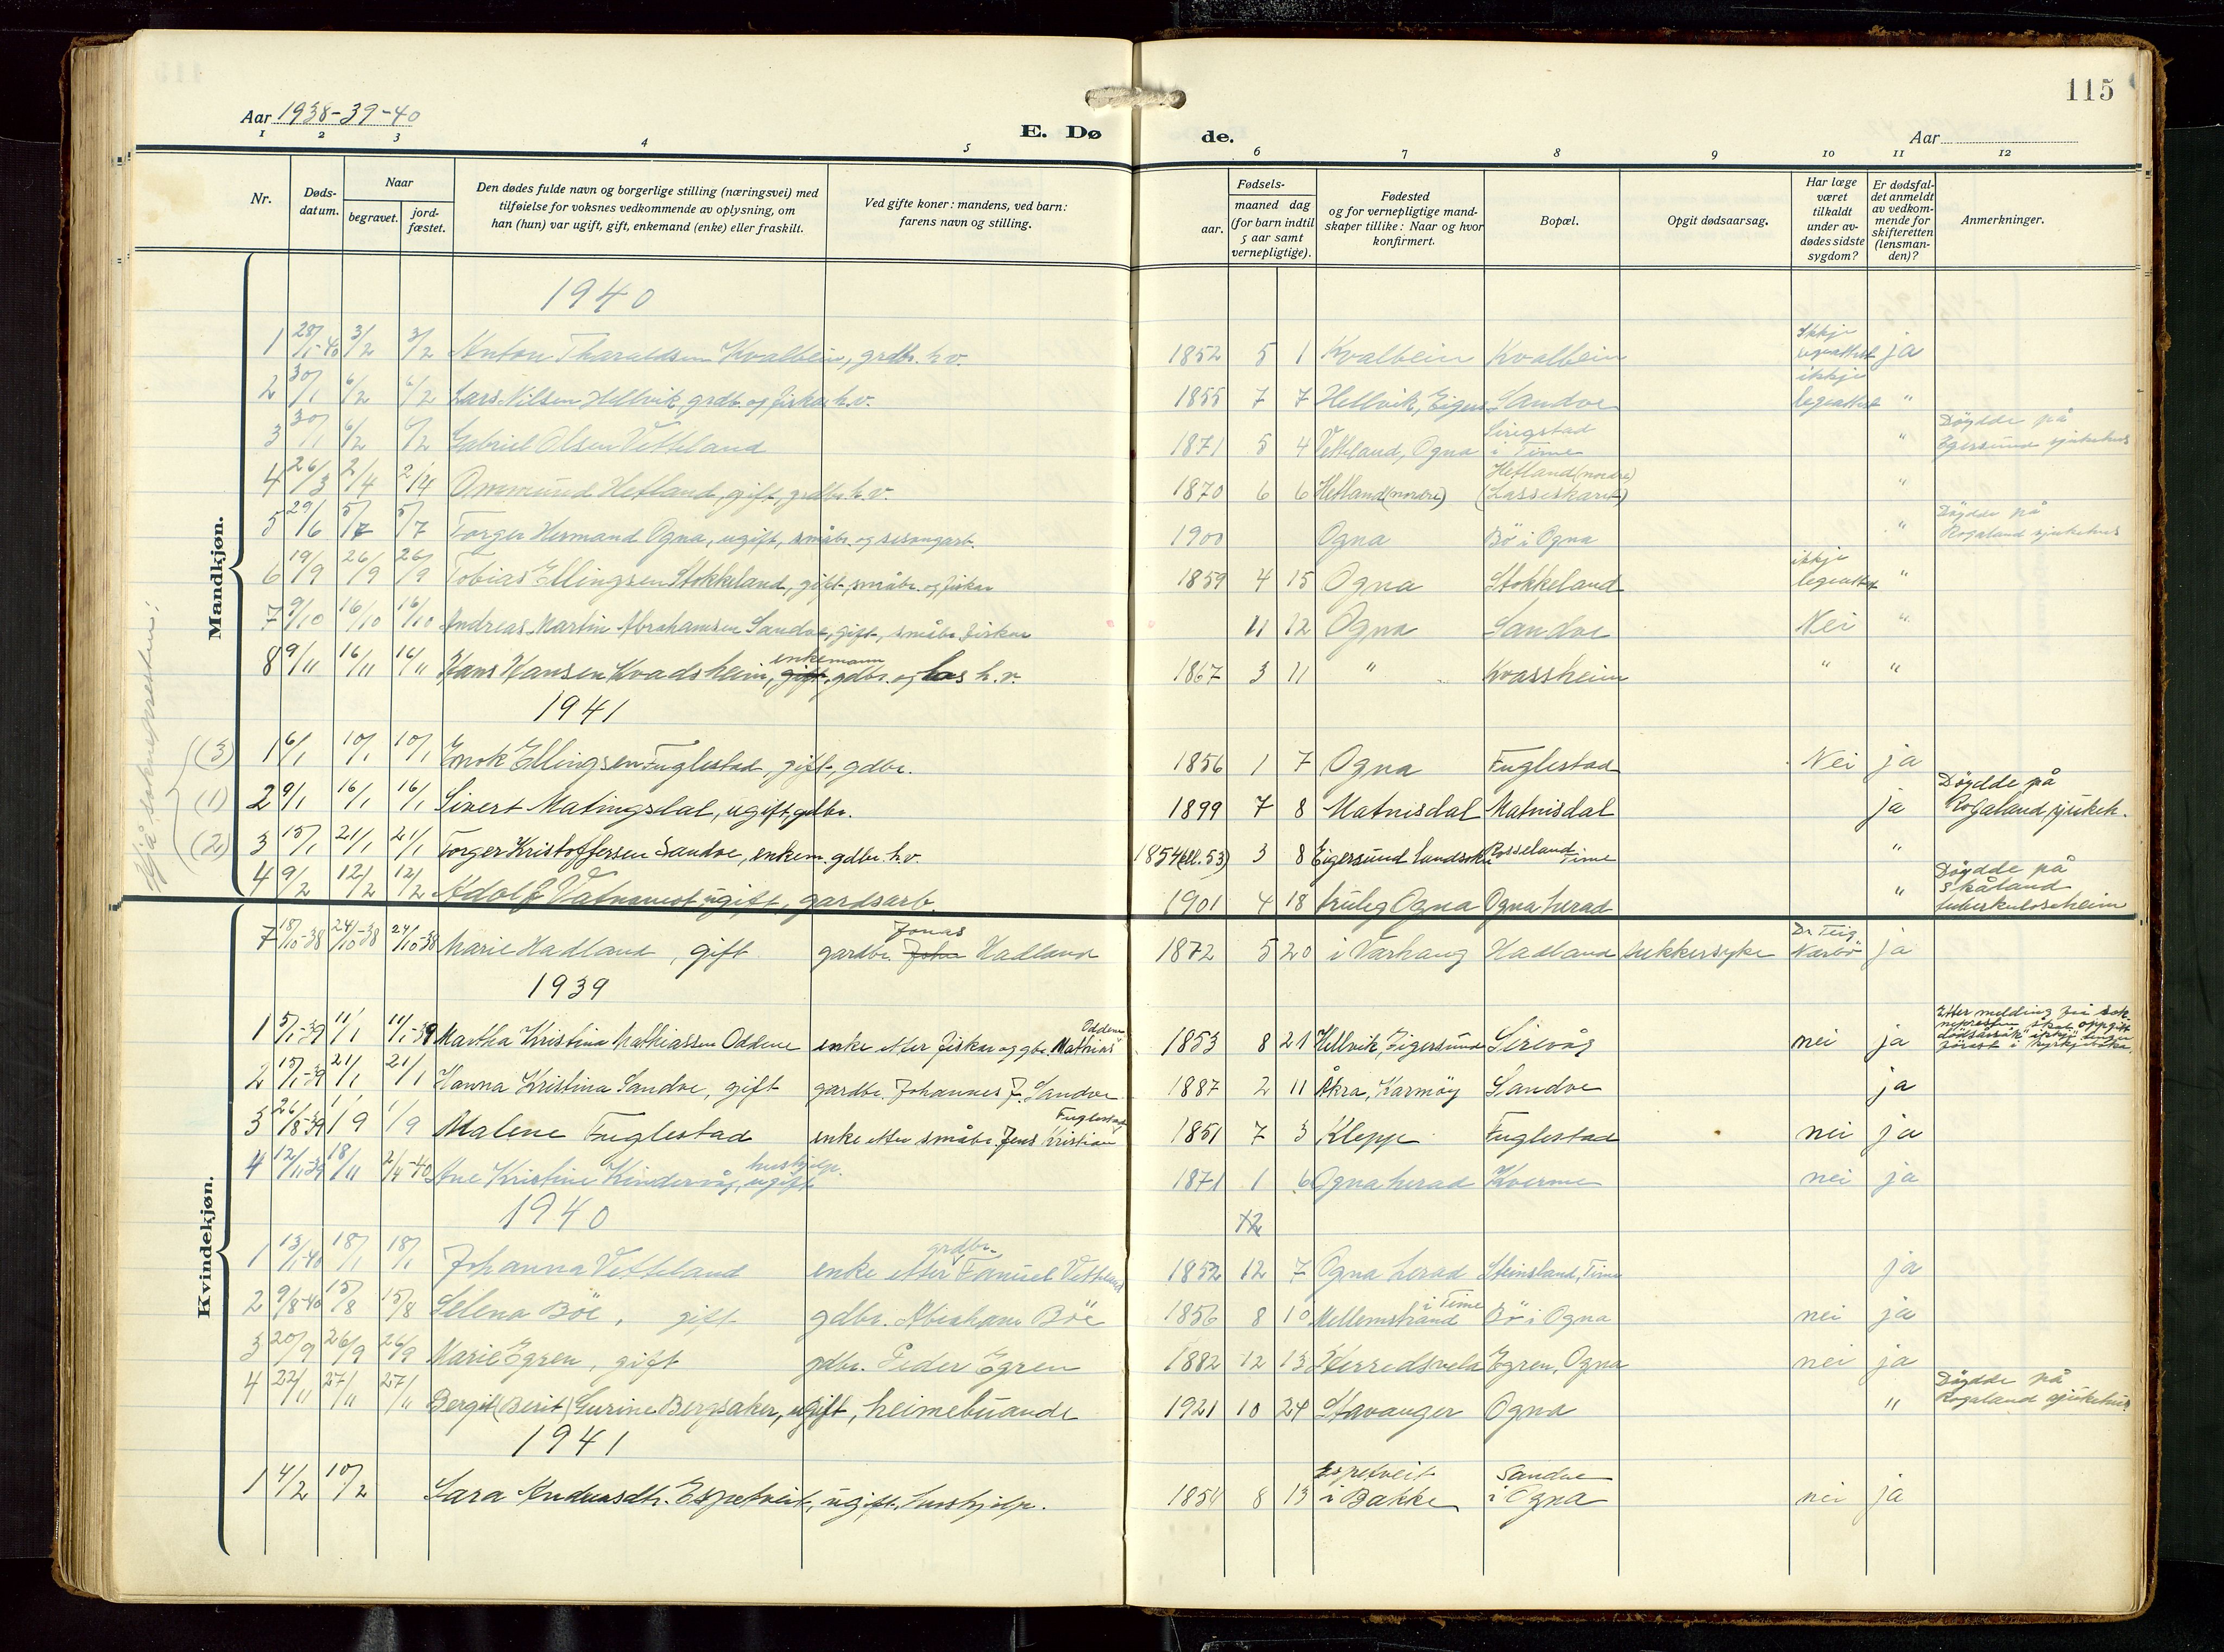 115
Aar 1938-39-40
E. Dø de.
Aar
1 2 3 4 5 6 7 8 9 10 11 12
Nr.
Døds-datum.
Naar
begravet.
jord-fæstet.
Den dødes fulde navn og borgerlige stilling (næringsvei) med
tilføielse for voksnes vedkommende av oplysning, om
han (hun) var ugift, gift, enkemand (enke) eller fraskilt.
Ved gifte koner: mandens, ved barn:
farens navn og stilling.
Fødsels-
aar.
maaned dag
(for barn indtil
5 aar samt
vernepligtige).
Fødested
og for vernepligtige mand-
skaper tillike: Naar og hvor
konfirmert.
Bopæl.
Opgit dødsaarsag.
Har læge
været
tilkaldt
under av-
dødes sidste
sygdom?
Er dødsfal-
det anmeldt
av vedkom-
mende for
skifteretten
(lensman-
den)?
Anmerkninger.
Mandkjøn.
1940
1 28/1-40 3/2 3/2 Anton Tharaldsen Kvalbein, grdbr. k.v. 1852 5 1 Kvalbein Kvalbein Ikkje legeattest ja
2 30/1 6/2 6/2 Lars Nilsen Hellvik grdb. og fiskar k.v. 1855 7 7 Hellvik, Eigers. Sandve ikkje legeattest "
3 30/1 6/2 6/2 Gabriel Olsen Vetteland 1871 5 4 Vetteland, Ogna Sirigstad i Time " Döydde på Egersund sjukehus
4 26/3 2/4 2/4 Ommund Hetland, gift, grdbr. k.v. 1870 6 6 Hetland (nordre) Hetland (nordre) (Lasseskaret) "
5 29/6 5/7 5/7 Torger Hermand Ogna, ugift, småbr. og sesongarb. 1900 Ogna Bö i Ogna " Döydde på Rogaland sjukehus
6 19/9 26/9 26/9 Tobias Ellingsen Stokkeland, gift, småbr. og fiskar 1859 4 15 Ogna Stokkeland ikkje legeattest "
7 9/10 16/10 16/10 Andreas Martin Abrahamsen Sandve, gift, småbr. fiskar 11 12 Ogna Sandve Nei "
8 9/11 16/11 16/11 Hans Hansen Kvadsheim, gift, enkemann gdbr. og los k.v. 1867 3 11 " Kvassheim " "
1941
(3) 1 6/1 10/1 10/1 Enok Ellingsen Fuglestad, gift, gdbr. 1856 1 7 Ogna Fuglestad Nei ja
(1) 2 9/1 16/1 16/1 Sivert Matingsdal, ugift, gdbr. 1899 7 8 Matnisdal Matnisdal ja Döydde på Rogaland sjukeh.
(2) 3 15/1 21/1 21/1 Torger Kristoffersen Sandve, enkem. gdbr. k.v. 1854 (ell. 53) 3 8 Eigersund landsokn Rosseland Time "
4 9/2 12/2 12/2 Adolf Vatnamot ugift, gardsarb. 1901 4 18 truleg Ogna Ogna herad " Döydde på Skåland tuberkuloseheim
Kvindekjøn.
7 18/10-38 24/10-38 24/10-38 Marie Hadland, gift gardbr. John Jonas Hadland 1872 5 20 i Varhaug Hadland sukkersyke Dr Teig Nærbö ja
1939
1 5/1-39 11/1 11/1-39 Martha Kristina Mathiassen Oddene enke etter fiskar og gbr. Mathias Oddene 1853 8 21 Hellvik, Eigersund Sirevåg nei ja Etter melding frå soknepresten skal oppgift dödsårsak ikkje lenger förast i kyrkjeboka.
2 15/1-39 21/1 21/1 Hanna Kristina Sandve, gift gardbr. Johannes J. Sandve 1887 2 11 Åkra, Karmöy Sandve ja
3 26/8-39 1/9 1/9 Malene Fuglestad enke etter småbr. Jens Kristian Fuglestad 1851 7 3 Klepp Fuglestad nei ja
4 12/11-39 18/11 2/4-40 Ane Kristine Kindervåg, ugift hushjelp. 1871 1 6 Ogna herad Kverme nei ja
1940
12
1 13/1-40 18/1 18/1 Johanna Vetteland enke etter grdbr. Fanuel Vetteland 1852 12 7 Ogna herad Steinsland, Time ja
2 9/8-40 15/8 15/8 Selena Böe, gift gdbr. Abraham Böe 1856 8 10 Mellemstrand i Time Bö i Ogna nei ja
3 20/9 26/9 26/9 Marie Egren, gift gdbr. Peder Egren 1882 12 13 Herredsvela Egren, Ogna nei ja
4 22/11 27/11 27/11 Bergit (Berit) Gurine Bergsaker, ugift, heimebuande 1921 10 24 Stavanger Ogna " Döydde på Rogaland sjukehus
1941
1 4/2 10/2 Sara Andersdtr. Espetveit, ugift, hushjelp. 1851 8 13 Espetveit i Bakke Sandve i Ogna nei ja